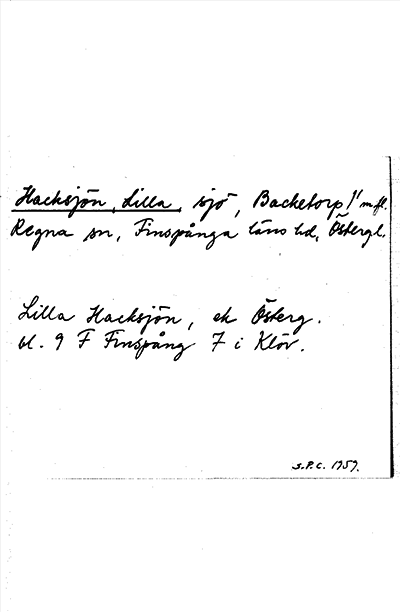 Hacksjön, Lilla, sjö, Backetorp 1/1 m.fl.
Regna sn, Finspånga läns hd, Östergl.
Lilla Hacksjön, ek Österg.
bl. 9 F Finspång 7 i Klöv.
S.P.C. 1959.